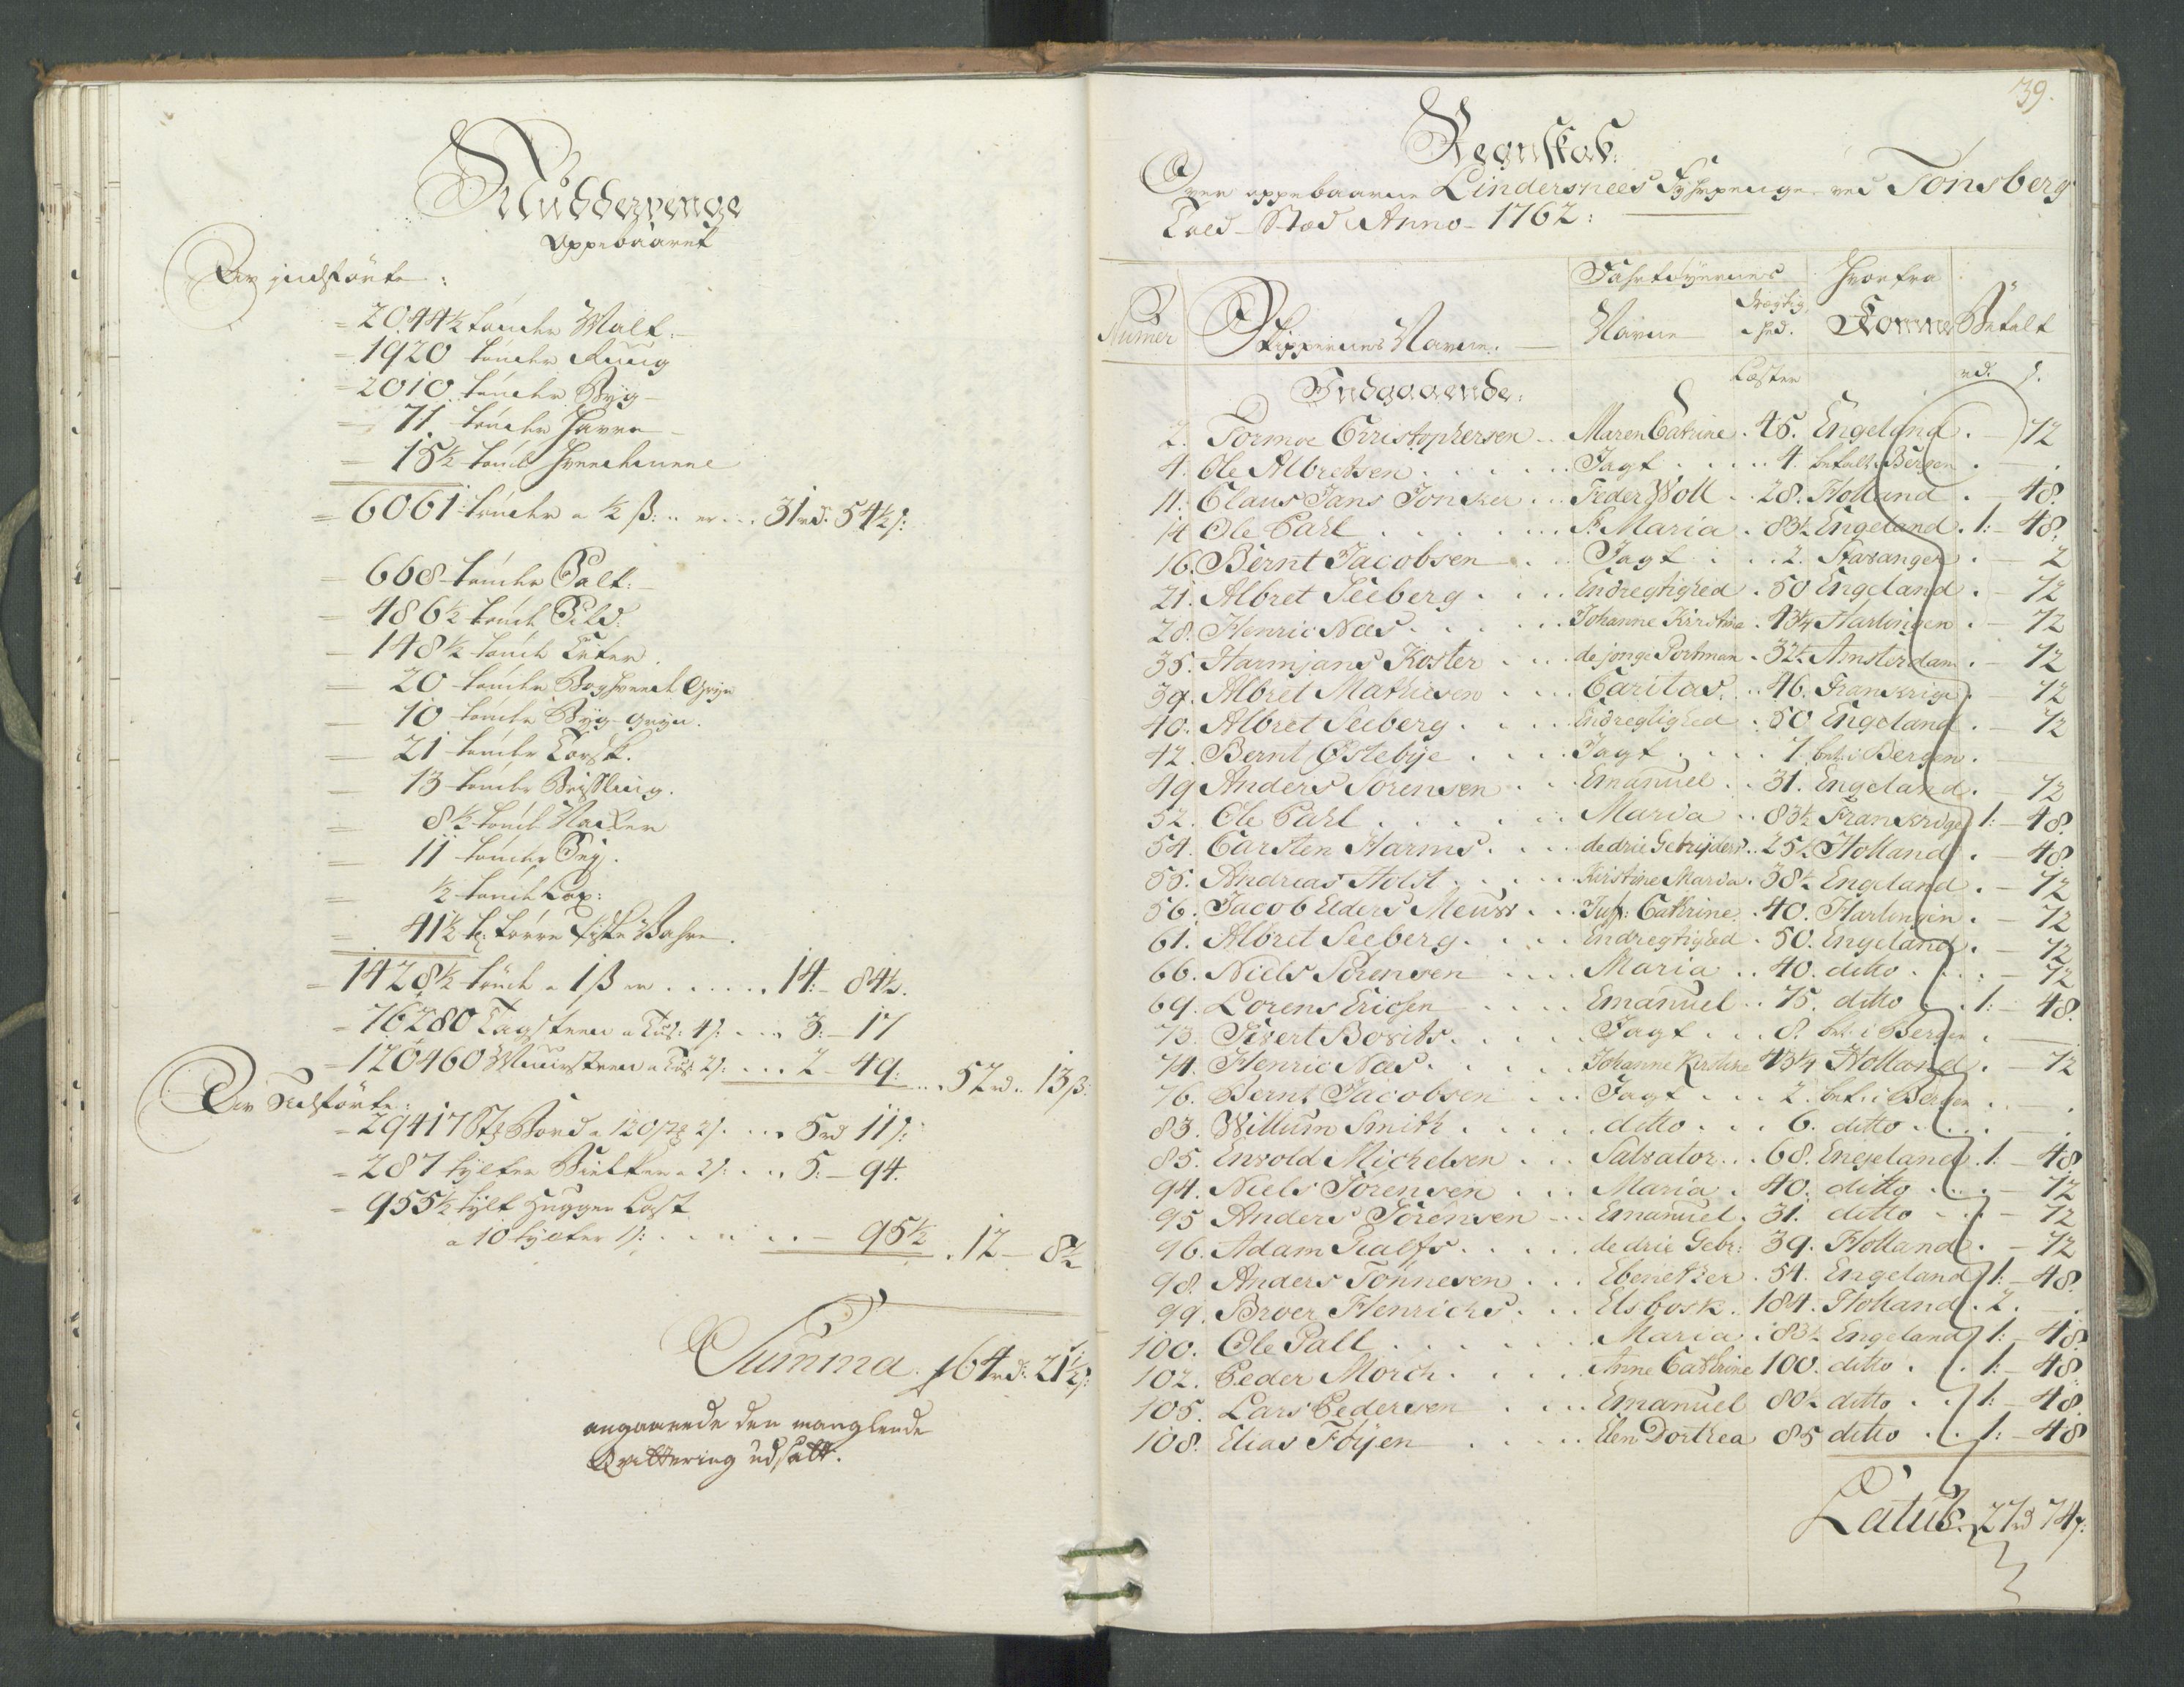 Mudderpenge
Oppebaaret
Av jndførte:
= 2044½ tönder Malt.
= 1920 tönder Rug
= 2010 tönder Byg
= 71 tönder Havre
= 15½ tönd
= 6061 tönder a ½ ß: .. er ... 31rd. 54½ s:
= 668 tönder Salt:
= 486½ tönd Sild:
= 148½ tönd
= 20 tönder Boghvede Gryn
= 10 tönder Byg-gryn.
= 21 tönder Torsk.
= 13 tönder Brissling.
= 8½ tönd
= 11 tönder Sey.
= ½ tönd Lax:
= 41½ törre fiske Wahre.
= 1428½ tönd a 1 ß er ...... 14:- 84½.
= 76280 Tagsteen a Tus: 4 s: ... 3:- 17
= 120460 Muursteen a Tus 2 s: ... 2 - 49: ... 52rd.. 13 ß:
Av Udførte:
= 29417 Stk Bord a 120 stk 2 s. ... 5rd 11 s:
= 287 tylter Bielker a 2 s: ... 5:- 94.
= 955½ tylt Huggen Last
a 10 tylter 1 s: ...... - 95½ . 12 - 8½
Summa. 64rd: 21½ s:
angaaende den manglende
Qvittering udsatt.
39.
Regnskab:
Over oppebaarne Lindersnees Fyhrpenge ved Tonsberg
Told-Stæd Anno-1762:
Numer Skippernes Navne. Fahrtöyernes Navne Drægtighed. Hvorfra Kommer Betalt
Læster rd. s.
Indgaaende:
2. Tormoe Christophersen .. Maren Catrine . 45. Engeland . - 72
4. Ole Albretsen ...... Jagt .... 4. betalt i Bergen . .
11. Claus Jans Joncker .. Feder Woll .. 28. Holland . - 48.
14 Ole Carl ...... St. Maria . 83½ Engeland . 1:- 48.
16. Bernt Jacobsen ... Jagt ... 2. Stavanger . - 2
21. Albret Seeberg .... Endregtighed . 50 Engeland . - 72
28. Henric Nas ...... Johanne Kirstina . 43¼ Harlingen . - 72
35. Harmjans Koster .... de jonge Portman . 32½ Amsterdam . - 72
39. Albret Mathiesen .... Caritas .. 46. Frankrige . - 72
40. Albret Seeberg .... Endregtighed . 50 Engeland . - 72
42. Bernt Østebye .... Jagt .... 7. bet: i Bergen .
49 Anders Sörensen ... Emanuel .. 31. Engeland . - 72
52. Ole Carl ...... Maria .. 83½ Frankrige 1:- 48.
54. Carsten Harms .... de drie Gebrÿders .. 25½ Holland . - 48
55. Andreas Holst ..... Kirstine Maria . 38½ Engeland . - 72
56. Jacob Elders Meuss .. Juf: Cathrine . 40. Harlingen . - 72
61. Albret Seeberg .... Endregtighed . 50. Engeland . - 72
66. Niels Sörensen .... Maria .. 40. ditto .... - 72
69. Lorens Ericksen .... Emanuel .. 75. ditto .. 1:- 48.
73. Sivert Bovits ..... Jagt ... 8. bet: i Bergen . -
74. Henric Nas ..... Johanne Kirstine 43¼ Holland . - 72
76. Bernt Jacobsen ... Jagt ... 2. bet: i Bergen . .
83. Willum Smith .... ditto ... 6. ditto .... .
85. Envold Michelsen ... Salvator ... 68. Engeland . 1 - 48
94. Niels Sörensen ... Maria . 40. ditto .... - 72
95 Anders Sörensen ... Emanuel . 31. ditto ... - 72
96. Adam Rialfs ..... de drie Gebr: 39. Holland . - 72
98. Anders Tönnesen ... Ebenetzer . 54. Engeland 1:- 48
99. Broer Henrichs ... Elsbosk .. 184. Holland . 2. - .
100. Ole Pall ...... Maria . 83½ Engeland 1:- 48
102. Peder Morch .... Anne Cathrine 100. ditto . . 1:- 48
105. Lars Pedersen ... Emanuel 80½ ditto . . 1:- 48
108. Elias Föyen .... Elen Dorthea 85 ditto . . 1:- 48
Latus. 27rd 74 s: